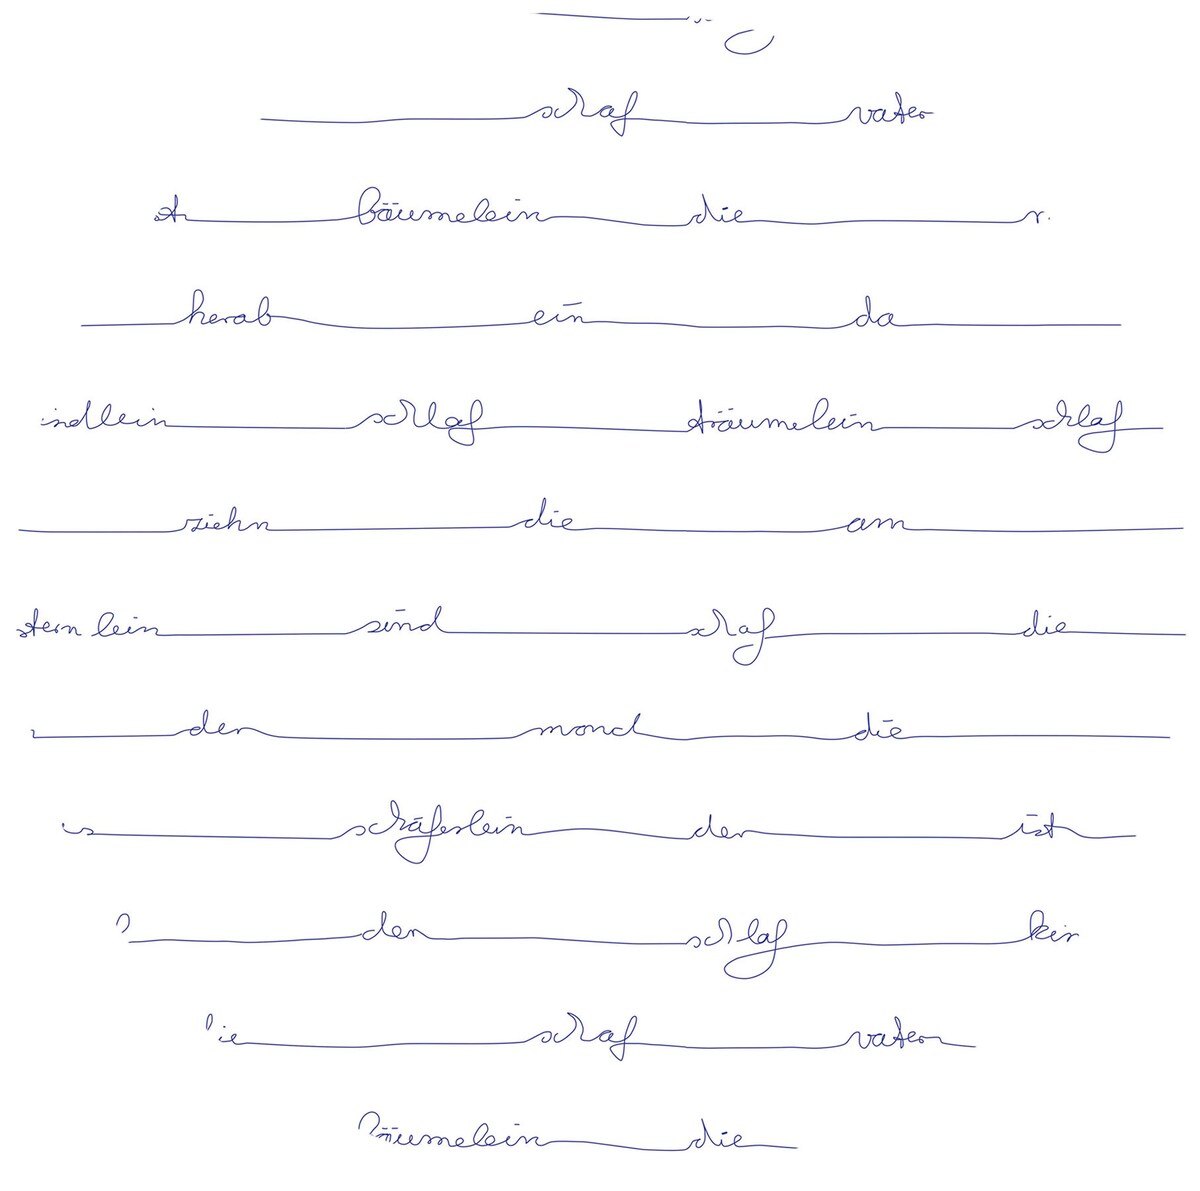 schaf vater
bäumelein die
herab ein da
indlein schlaf träumelein schlaf
ziehn die am
sternlein sind schaf die
der mond die
schäferlein der ist
der schlaf
ie schaf vater
äumelein die